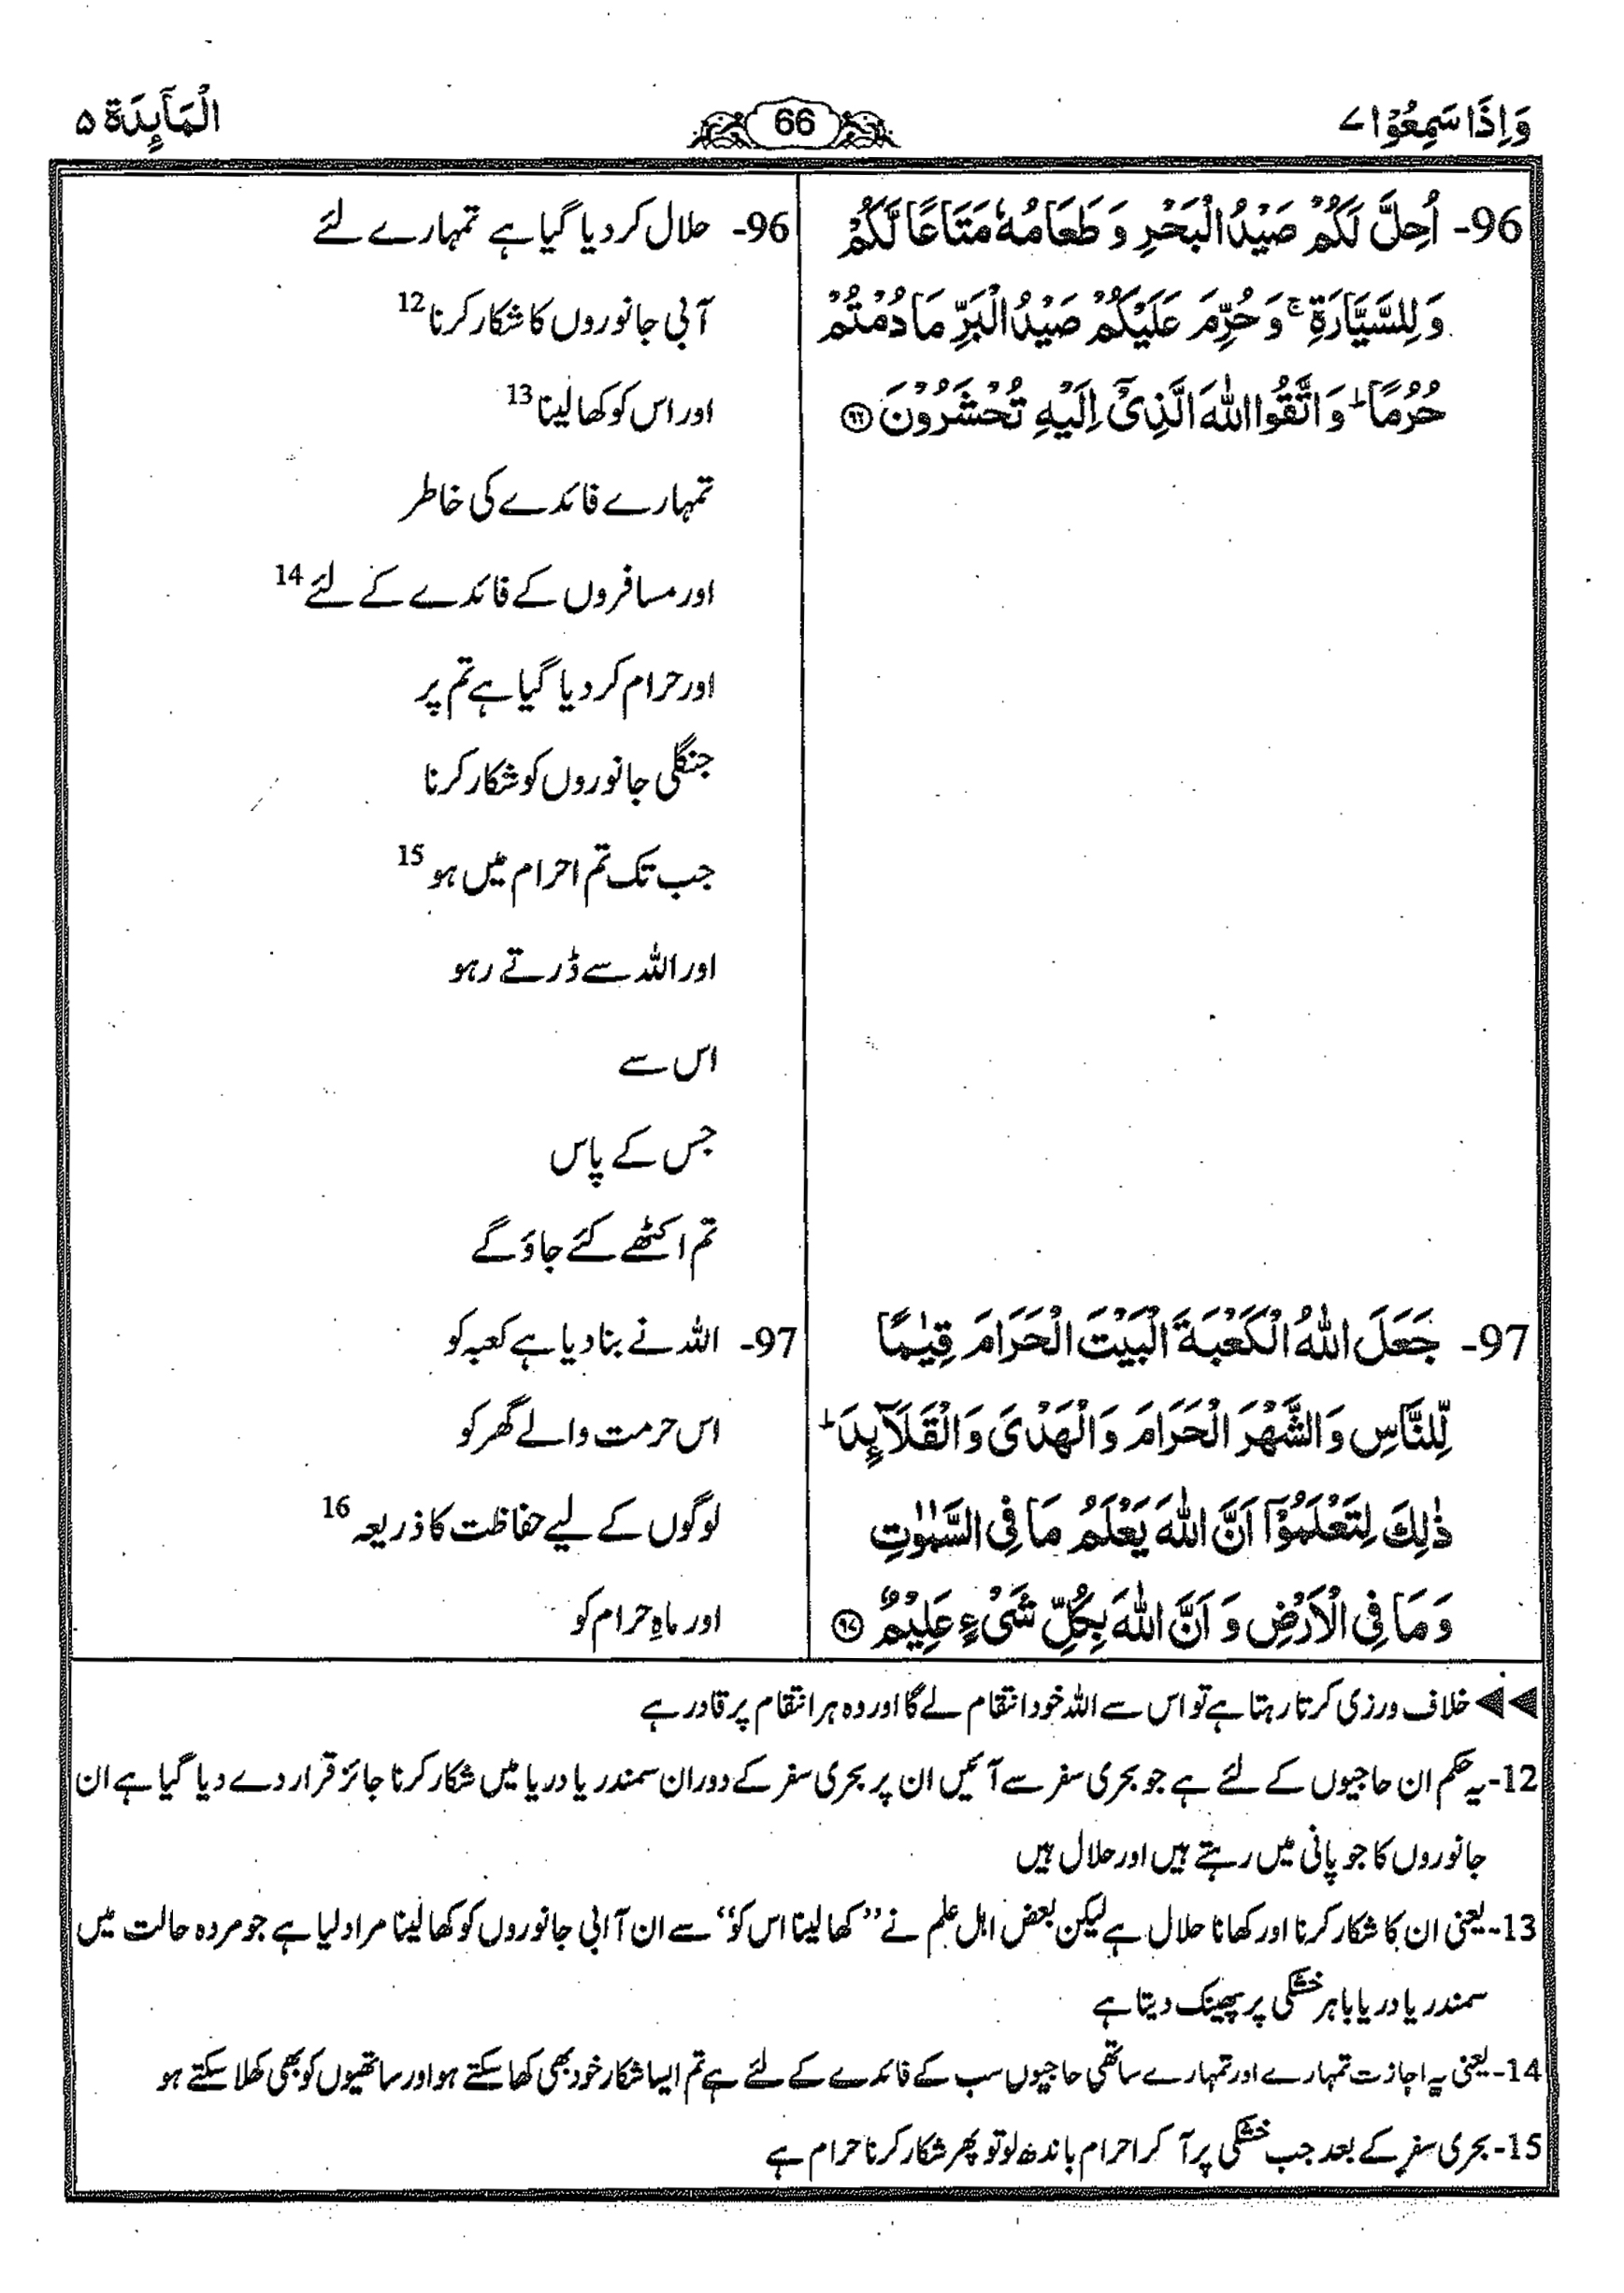 وَاِذَا سَمِعُوْا ۷
66
الْمَآىِٕدَة ۵
96- اُحِلَّ لَكُمْ صَيْدُ الْبَحْرِ وَ طَعَامُهٗ مَتَاعًا لَّكُمْ
وَ لِلسَّيَّارَةِ ۚ وَ حُرِّمَ عَلَيْكُمْ صَيْدُ الْبَرِّ مَا دُمْتُمْ
حُرُمًا ؕ وَ اتَّقُوا اللّٰهَ الَّذِيْۤ اِلَيْهِ تُحْشَرُوْنَ ۝۹۶
97- جَعَلَ اللّٰهُ الْكَعْبَةَ الْبَيْتَ الْحَرَامَ قِيٰمًا
لِّلنَّاسِ وَ الشَّهْرَ الْحَرَامَ وَ الْهَدْيَ وَ الْقَلَآىِٕدَ ؕ
ذٰلِكَ لِتَعْلَمُوْۤا اَنَّ اللّٰهَ يَعْلَمُ مَا فِي السَّمٰوٰتِ
وَ مَا فِي الْاَرْضِ وَ اَنَّ اللّٰهَ بِكُلِّ شَيْءٍ عَلِيْمٌ ۝۹۷
96- حلال کر دیا گیا ہے تمہارے لئے
آبی جانوروں کا شکار کرنا 12
اور اس کو کھا لینا 13
تمہارے فائدے کی خاطر
اور مسافروں کے فائدے کے لئے 14
اور حرام کر دیا گیا ہے تم پر
جنگلی جانوروں کو شکار کرنا
جب تک تم احرام میں ہو 15
اور اللہ سے ڈرتے رہو
اس سے
جس کے پاس
تم اکٹھے کئے جاؤ گے
97- اللہ نے بنا دیا ہے کعبہ کو
اس حرمت والے گھر کو
لوگوں کے لیے حفاظت کا ذریعہ 16
اور ماہِ حرام کو
◄◄ خلاف ورزی کرتا رہتا ہے تو اس سے اللہ خود انتقام لے گا اور وہ ہر انتقام پر قادر ہے
12- یہ حکم ان حاجیوں کے لئے ہے جو بحری سفر سے آئیں ان پر بحری سفر کے دوران سمندر یا دریا میں شکار کرنا جائز قرار دے دیا گیا ہے ان
جانوروں کا جو پانی میں رہتے ہیں اور حلال ہیں
13- یعنی ان کا شکار کرنا اور کھانا حلال ہے لیکن بعض اہل علم نے ”کھا لینا اس کو“ سے ان آبی جانوروں کو کھا لینا مراد لیا ہے جو مردہ حالت میں
سمندر یا دریا باہر خشکی پر پھینک دیتا ہے
14- یعنی یہ اجازت تمہارے اور تمہارے ساتھی حاجیوں سب کے فائدے کے لئے ہے تم ایسا شکار خود بھی کھا سکتے ہو اور ساتھیوں کو بھی کھلا سکتے ہو
15- بحری سفر کے بعد جب خشکی پر آ کر احرام باندھ لو تو پھر شکار کرنا حرام ہے